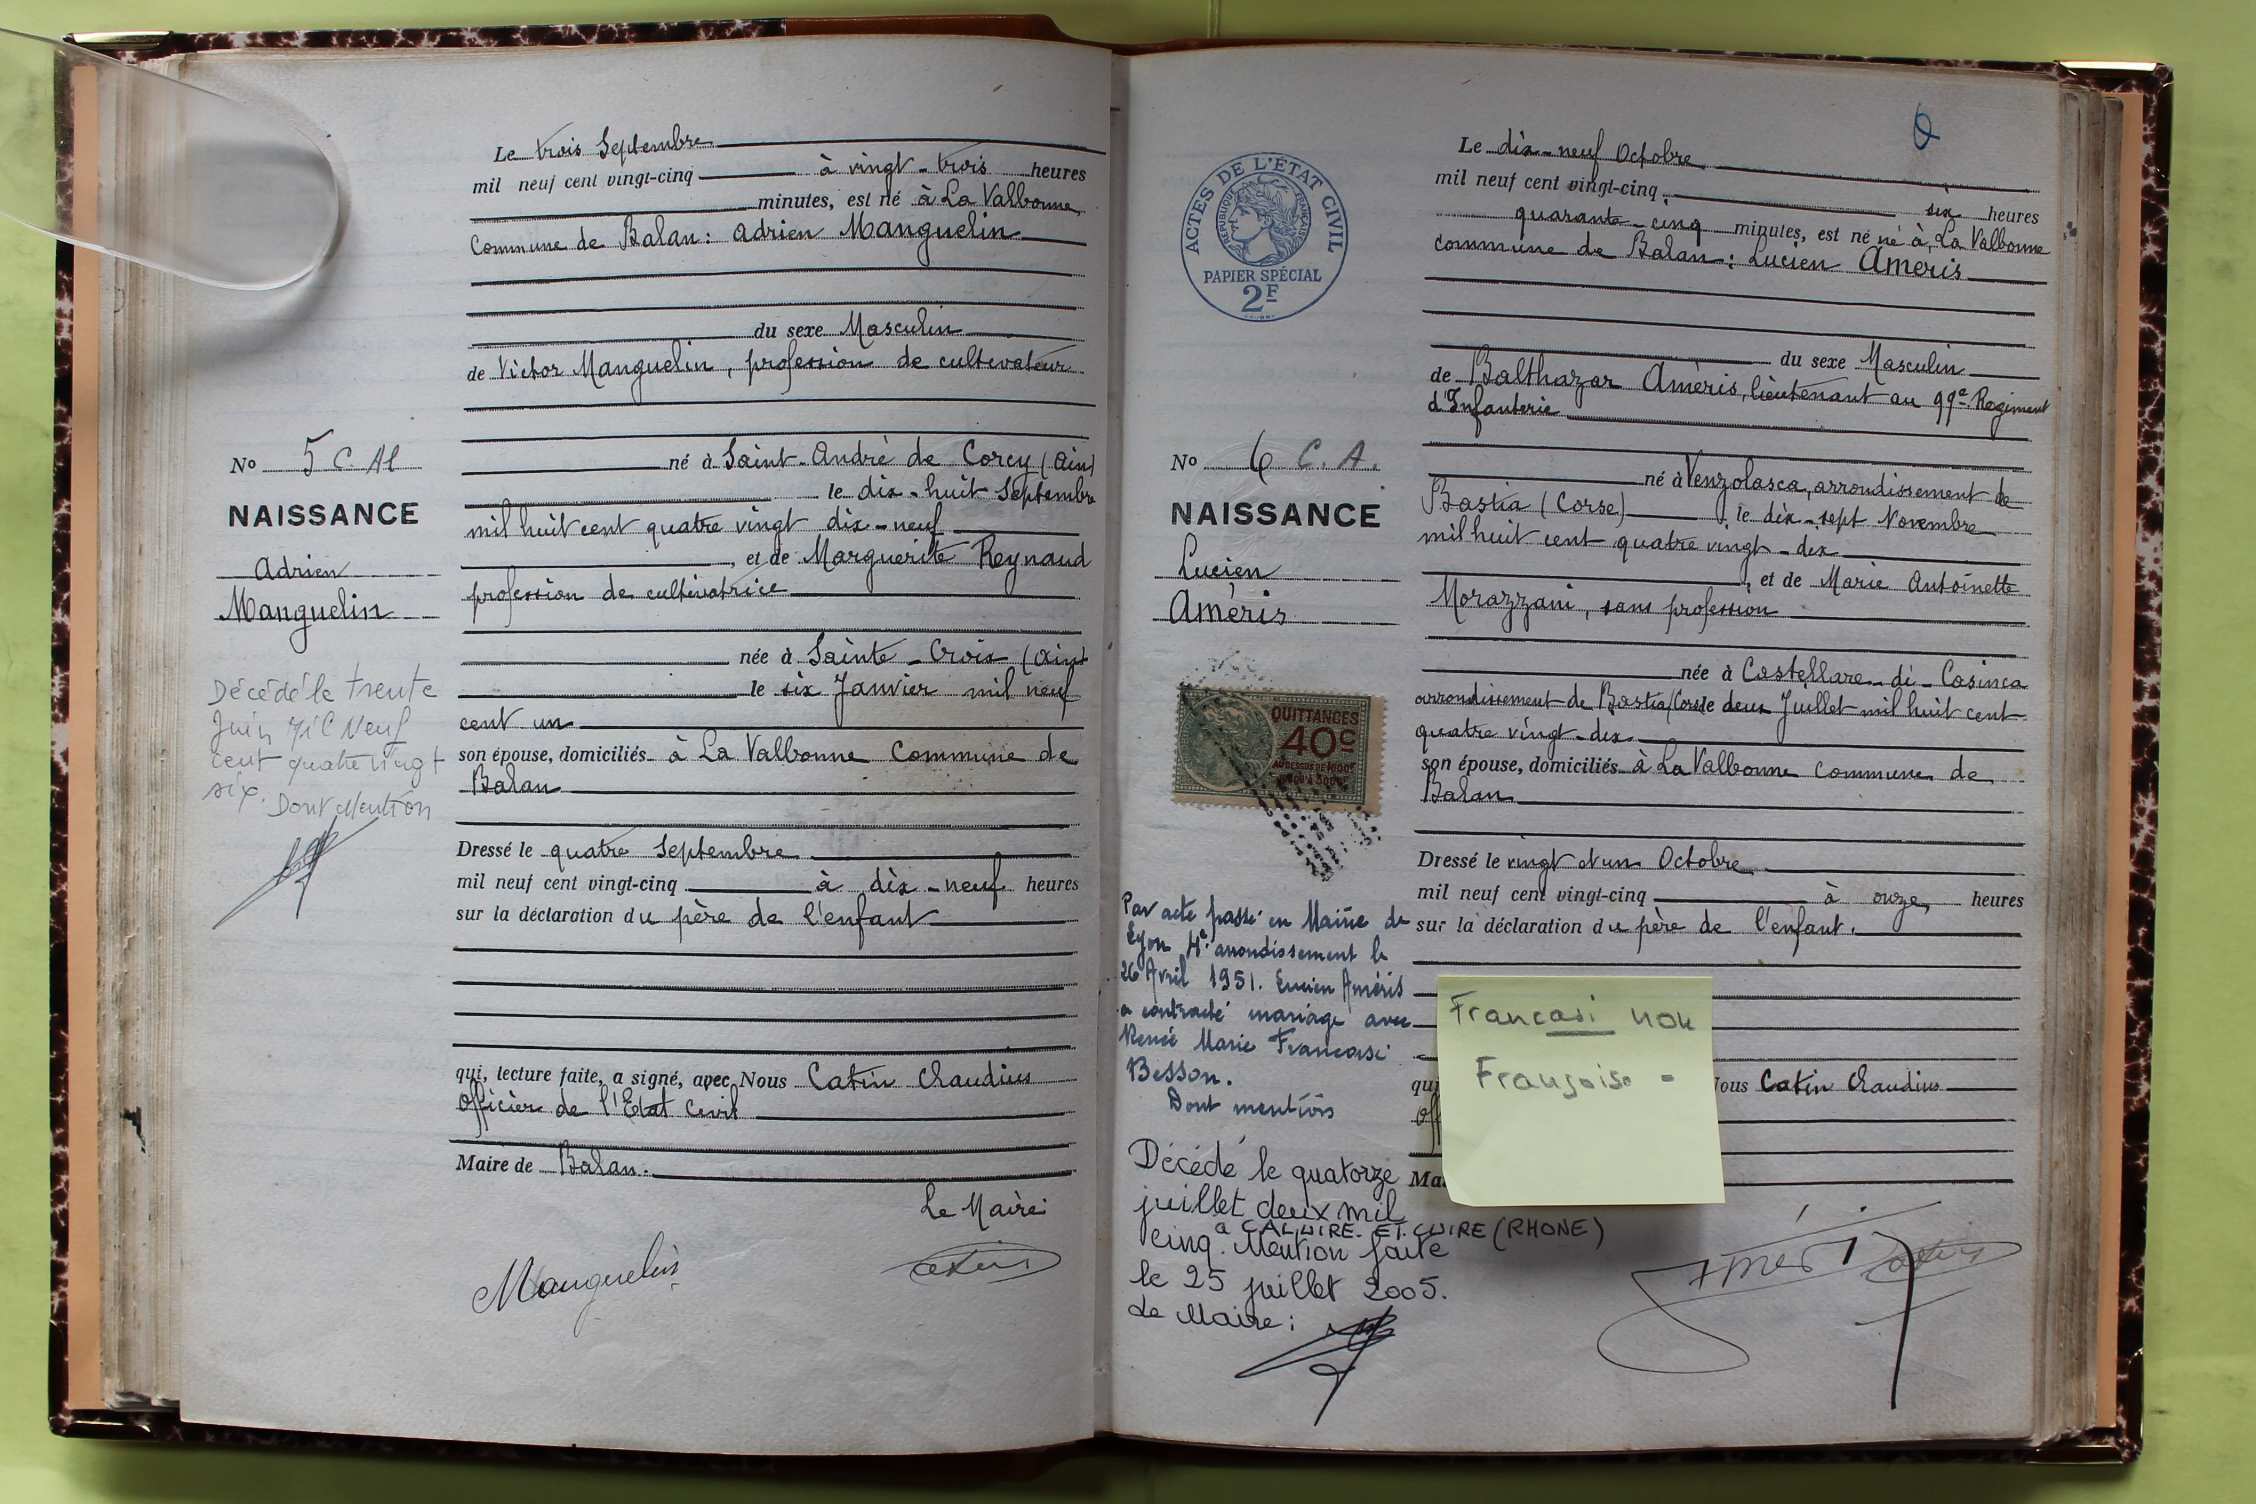 Le trois Septembre
mil neuf cent vingt-cinq à vingt-trois heures
minutes, est né à La Valbonne,
Commune de Balan: Adrien Manguelin
du sexe Masculin
de Victor Manguelin, profession de cultivateur
né à Saint-André de Corcy (Ain)
le dix-huit Septembre
mil huit cent quatre vingt dix-neuf
, et de Marguerite Reynaud
profession de cultivatrice
née à Sainte-Croix (Ain)
le six Janvier mil neuf
cent un
son épouse, domiciliés à La Valbonne Commune de
Balan
Dressé le quatre Septembre
mil neuf cent vingt-cinq à dix-neuf heures
sur la déclaration du père de l'enfant
qui, lecture faite, a signé, avec Nous Catin Claudius
Officier de l'Etat Civil
Maire de Balan.
Le Maire:
Manguelin
Catin
No 5 C. Al
NAISSANCE
Adrien
Manguelin
Décédé le trente
Juin Mil Neuf
cent quatre vingt
six. Dont Mention
ACTES DE L'ÉTAT CIVIL
RÉPUBLIQUE FRANÇAISE
PAPIER SPÉCIAL
2F
6
Le dix-neuf Octobre
mil neuf cent vingt-cinq, six heures
quarante-cinq minutes, est né né à La Valbonne
commune de Balan: Lucien Améris
du sexe Masculin
de Balthazar Améris, lieutenant au 99e Regiment
d'Infanterie
né à Venzolasca, arrondissement de
Bastia (Corse) le dix-sept Novembre
mil huit cent quatre vingt-dix
, et de Marie Antoinette
Morazzani, sans profession
née à Castellare-di-Casinca
arrondissement de Bastia (Corse) le deux Juillet mil huit cent
quatre vingt-dix
son épouse, domiciliés à La Valbonne commune de
Balan
Dressé le vingt et un Octobre
mil neuf cent vingt-cinq à onze, heures
sur la déclaration du père de l'enfant.
qui Nous Catin Claudius
Off
Ma
Francasi non
Françoise -
Améris Catin
No 6 C. A.
NAISSANCE
Lucien
Améris
QUITTANCES
40c
Par acte passé en Mairie de
Lyon 4e arrondissement le
26 Avril 1951. Lucien Améris
a contracté mariage avec
Renée Marie Francasi
Besson.
Dont mention
Décédé le quatorze
juillet deux mil
a CALUIRE-ET-CUIRE (RHONE)
cinq. Mention faite
le 25 juillet 2005.
Le Maire: